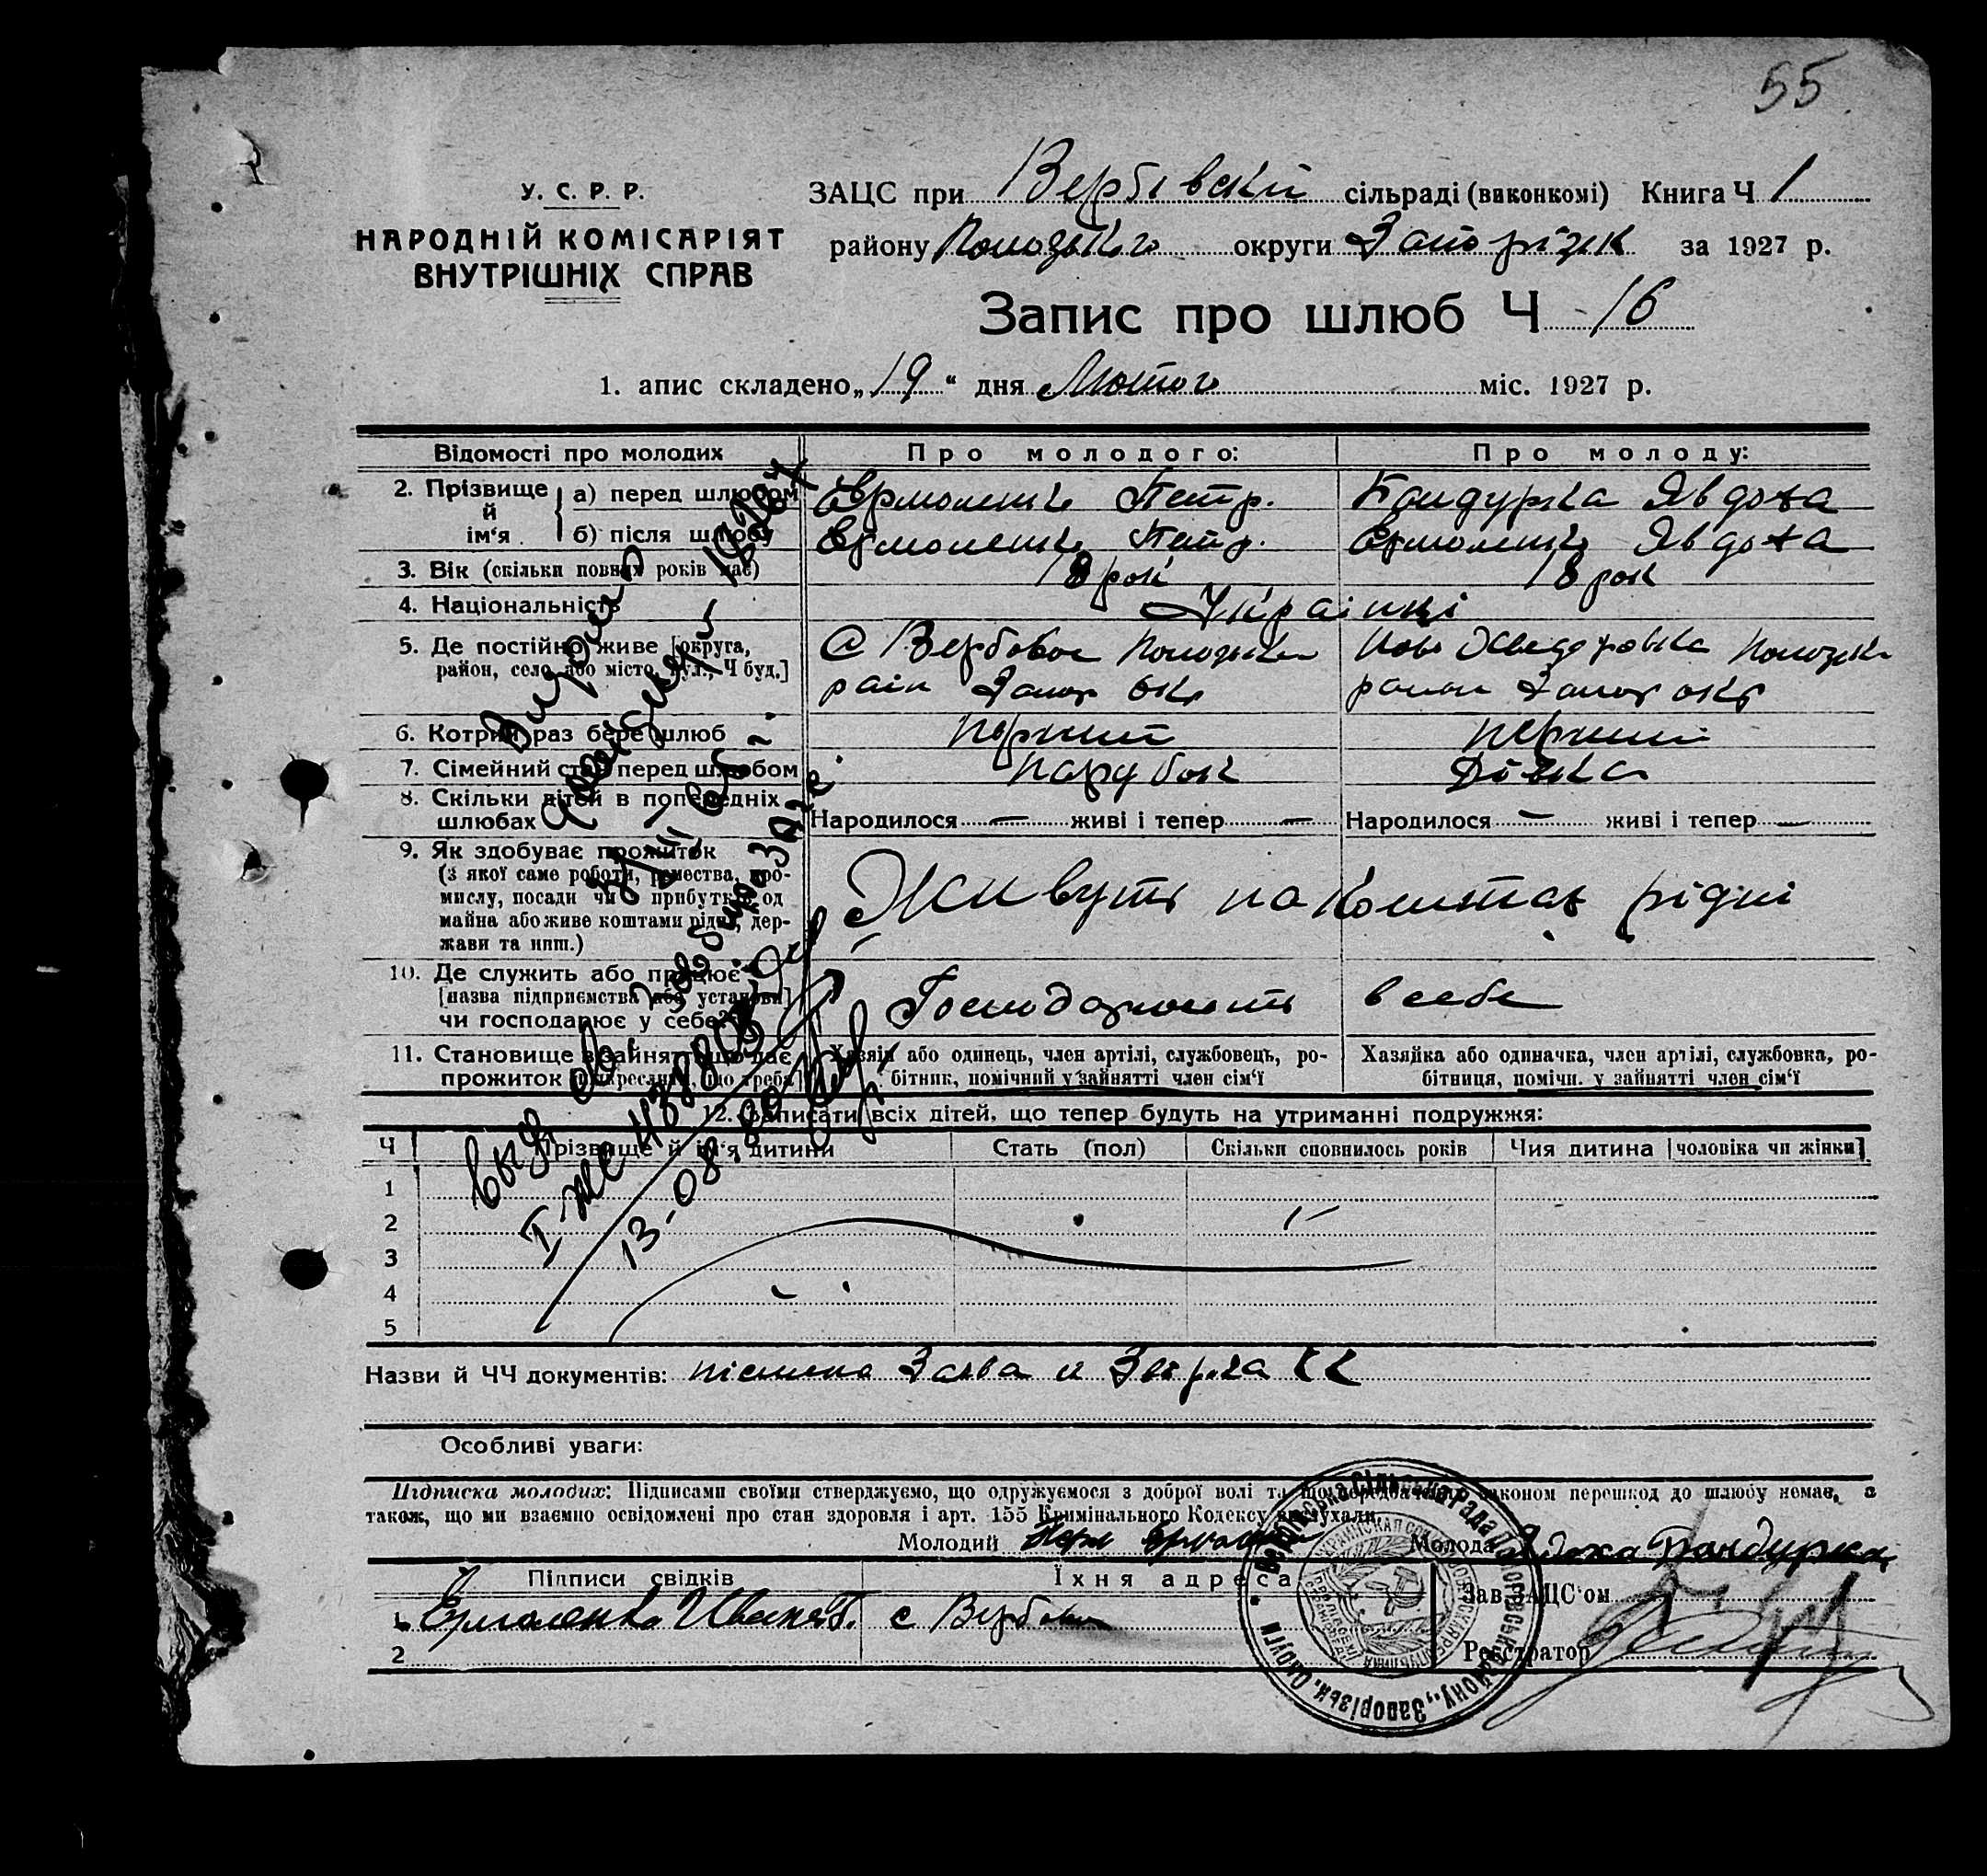 55
У. С. Р. Р.
НАРОДНІЙ КОМІСАРІЯТ
ВНУТРІШНІХ СПРАВ
ЗАЦС при Вербівскій сільраді (виконкомі) Книга Ч 1
району округи Запоріzк за 1927 р.
Запис про шлюб Ч 16
1. апис складено „19“ дня Лютого міс. 1927 р.
Відомості про молодих Про молодого: Про молоду:
2. Прізвище й ім‘я а) перед шлюбом Єрмоленко Петр. Бандурка Явдоха
б) після шлюбу Єрмоленко Петр. Єрмоленко Явдоха
3. Вік (скільки повних років має) 18 рок 18 рок
4. Національність Українці
5. Де постійно живе [округа, район, село або місто, вул., Ч буд.]
С Вербовое
раін Запор окр
район Запор окр
6. Котрий раз бере шлюб перший перший
7. Сімейний стан перед шлюбом парубок дівка
8. Скільки дітей в попередніх шлюбах Народилося — живі і тепер — Народилося — живі і тепер —
9. Як здобуває прожиток
(з якої саме роботи, ремества, промислу, посади чи з прибутків од майна або живе коштами рідні, держави та инш.)
Живуть на коштах рідні
10. Де служить або працює
[назва підприємства або установи]
чи господарює у себе?
Господарюють в себе
11. Становище в занятті що дає прожиток [підкреслити, що треба]
Хазяїн або одинець, член артілі, службовець, робітник, помічний у зайнятті член сім‘ї
Хазяйка або одиначка, член артілі, службовка, робітниця, помічн. у зайнятті член сім‘ї
12. Записати всіх дітей, що тепер будуть на утриманні подружжя:
Ч Прізвище й ім‘я дитини Стать (пол) Скільки сповнилось років Чия дитина [чоловіка чи жінки]
1
2
3
4
5
13-08-80
Назви й ЧЧ документів: пісмена Заява
Особливі уваги:
Підписка молодих: Підписами своїми стверджуємо, що одружуємося з доброї волі та що передбачених законом перешкод до шлюбу немає, а
також, що ми взаємно освідомлені про стан здоровля і арт. 155 Кримінального Кодексу вислухали.
Молодий Молода Явдоха Бандурка
Підписи свідків Їхня адреса Зав ЗАЦС‘ом
1. Ермоленко Иван с Вербовое
2 Реєстратор
Сільська Рада району, Запорізьк. Округи